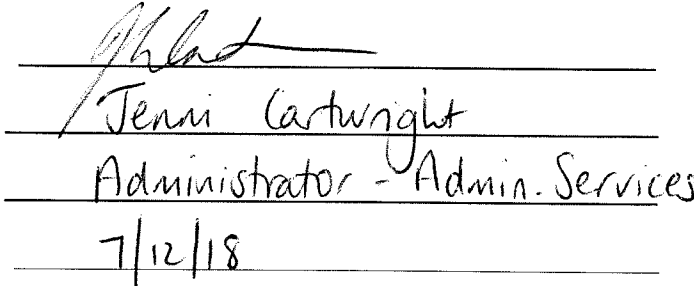 Jenni Cartwright
Administrator - Admin. Services
7/12/18